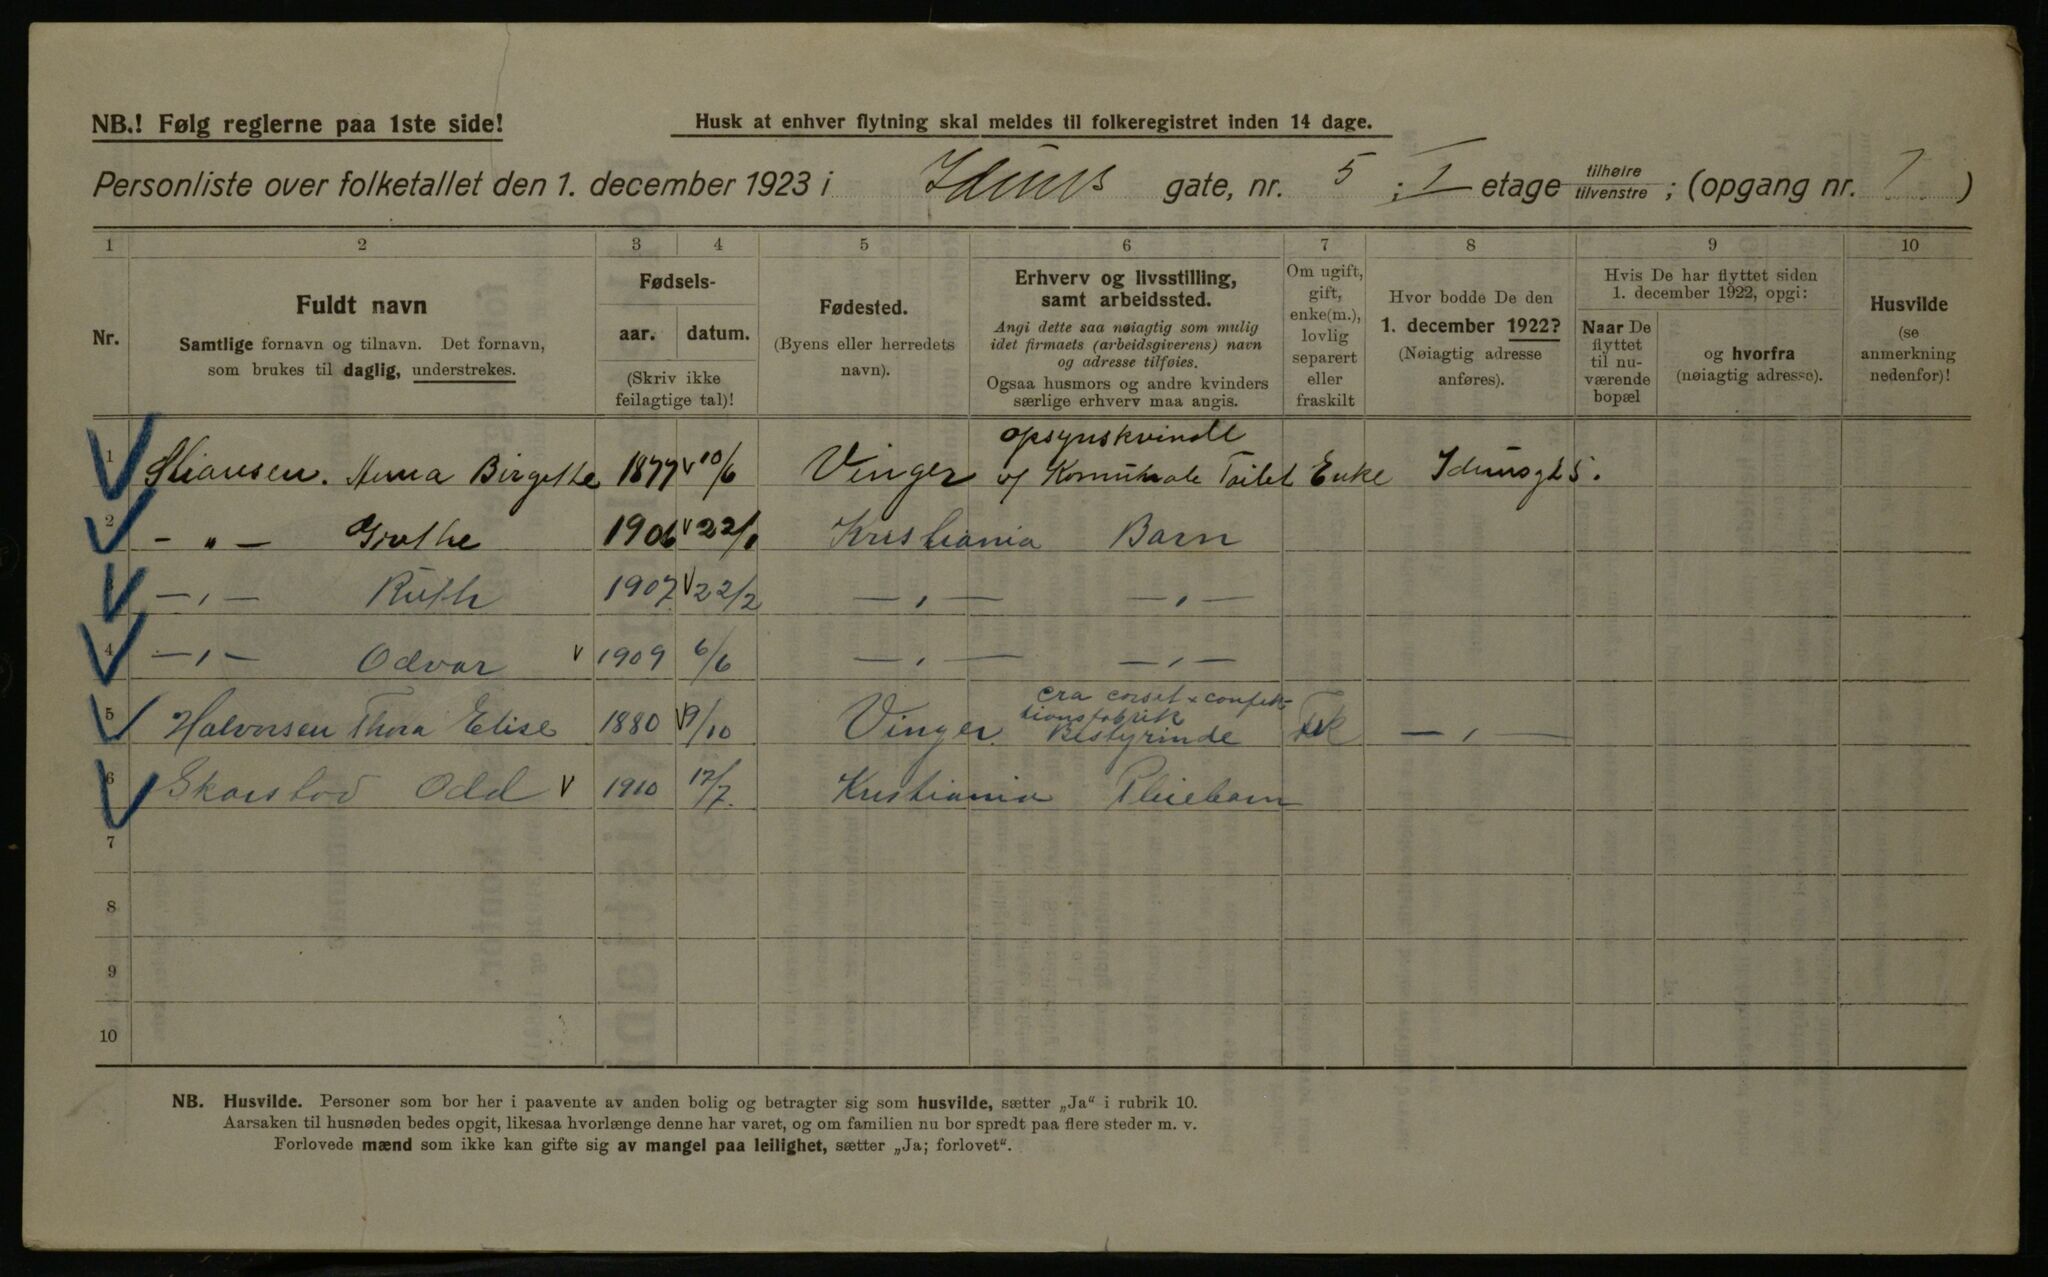 NB.! Følg reglerne paa 1ste side!
Husk at enhver flytning skal meldes til folkeregistret inden 14 dage.
Personliste over folketallet den 1. december 1923 i Iduns gate, nr. 5 ; I etage tilhøire tilvenstre ; (opgang nr. )
1 2 3 4 5 6 7 8 9 10
Nr.
Fuldt navn
Samtlige fornavn og tilnavn. Det fornavn,
som brukes til daglig, understrekes.
Fødsels-
aar. datum.
(Skriv ikke
feilagtige tal)!
Fødested.
(Byens eller herredets
navn).
Erhverv og livsstilling,
samt arbeidssted.
Angi dette saa nøiagtig som mulig
idet firmaets (arbeidsgiverens) navn
og adresse tilføies.
Ogsaa husmors og andre kvinders
særlige erhverv maa angis.
Om ugift,
gift,
enke(m.),
lovlig
separert
eller
fraskilt
Hvor bodde De den
1. december 1922?
(Nøiagtig adresse
anføres).
Hvis De har flyttet siden
1. december 1922, opgi:
Naar De
flyttet
til nu-
værende
bopæl
og hvorfra
(nøiagtig adresse).
Husvilde
(se
anmerkning
nedenfor)!
opsynskvinde
1 Stiansen. Anna Birgithe 1877 10/6 Vinger v/ Komunale Toilet Enke Idunsgt 5.
2 - „ - Grethe 1906 22/1 Kristiania Barn
3 - „ - Ruth 1907 22/2 - „ - - „ -
4 - „ - Odvar 1909 6/6 - „ - - „ -
cra corset & confek-
tionsfabrik
5 Halvorsen Thora Elise 1880 9/10 Vinger Bestyrinde - „ -
6 Skarstad Odd 1910 17/7. Kristiania Pleiebarn
7
8
9
10
NB. Husvilde. Personer som bor her i paavente av anden bolig og betragter sig som husvilde, sætter „Ja" i rubrik 10.
Aarsaken til husnøden bedes opgit, likesaa hvorlænge denne har varet, og om familien nu bor spredt paa flere steder m. v.
Forlovede mænd som ikke kan gifte sig av mangel paa leilighet, sætter „Ja; forlovet".